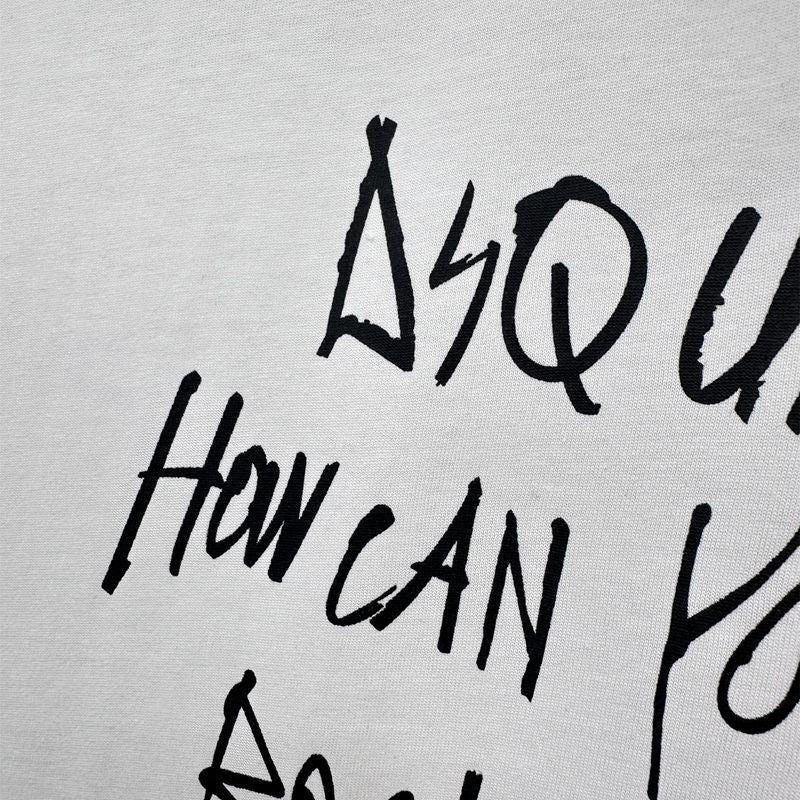 DSQU
HOW CAN YO